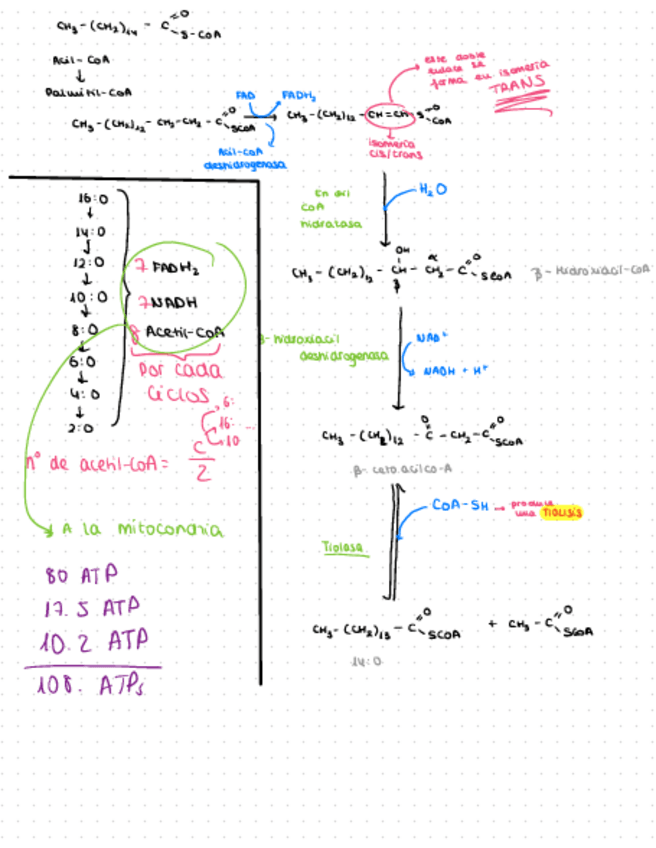 CH₃-(CH₂)₁₄ - C=O S-CoA
Acil-CoA
↓
Palmitil-CoA
CH₃-(CH₂)₁₂ - CH₂-CH₂ - C=O SCOA
FAD
FADH₂
Acil-CoA
deshidrogenasa
CH₃-(CH₂)₁₂ - CH=CH S=O -COA
este doble
enlace se
forma en isomería
TRANS
isomería
cis/trans
En oil
CoA
hidratasa
H₂O
OH
CH₃-(CH₂)₁₂ - CH - CH₂ - C=O SCOA
α
β
β-Hidroxiacil-CoA
β-hidroxiacil
deshidrogenasa
NAD⁺
NADH + H⁺
CH₃-(CH₂)₁₂ - C=O - CH₂ - C=O SCOA
β-ceto acilco-A
CoA-SH → produce
una TIOLISIS
Tiolasa
CH₃-(CH₂)₁₃ - C=O SCOA + CH₃ - C=O SCOA
14:0
16:0
↓
14:0
↓
12:0
↓
10:0
↓
8:0
↓
6:0
↓
4:0
↓
2:0
7 FADH₂
7 NADH
8 Acetil-CoA
Por cada
ciclos
6:
16: ...
10
nº de acetil-CoA = C/2
A la mitocondria
80 ATP
17.5 ATP
10.2 ATP
108. ATPs